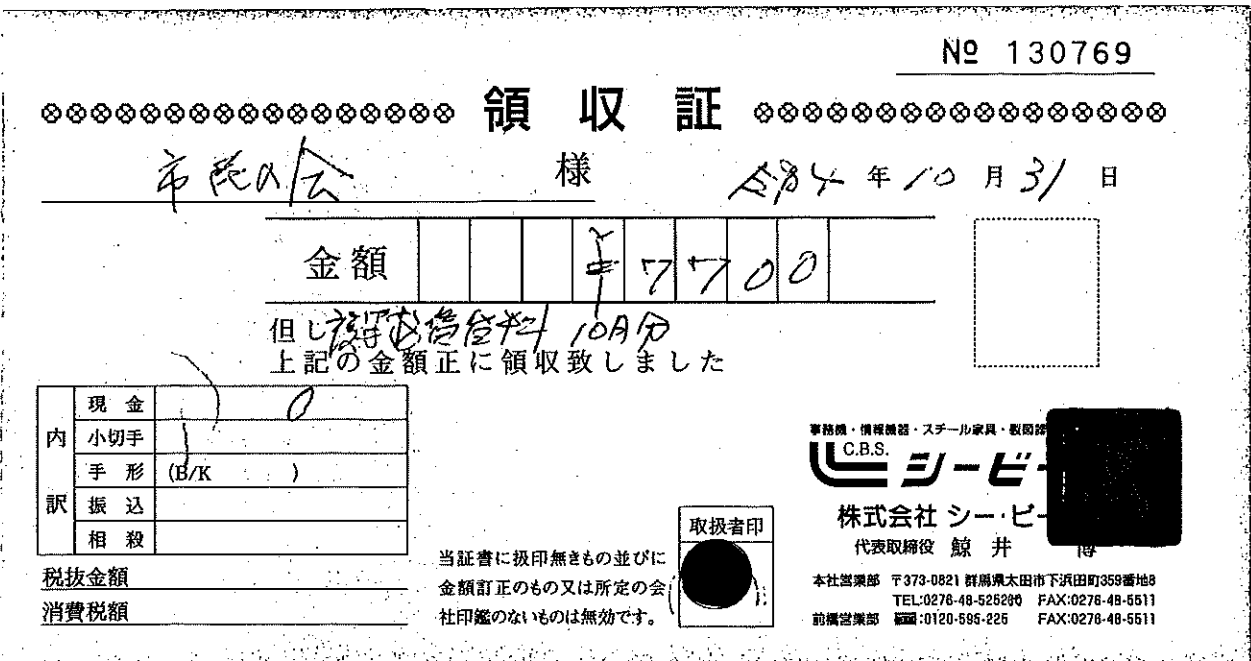 № 130769
領収証
市民の会 様
年 10 月 31 日
金額 ¥7700
但し 10月分
上記の金額正に領収致しました
内訳
現金 0
小切手
手形 (B/K )
振込
相殺
税抜金額
消費税額
当証書に扱印無きもの並びに
金額訂正のもの又は所定の会
社印鑑のないものは無効です。
取扱者印
事務機・情報機器・スチール家具・製図
C.B.S. シービー
株式会社 シー・ビー
代表取締役 鯨井 博
本社営業部 〒373-0821 群馬県太田市下浜田町359番地8
TEL:0276-48-5252 FAX:0276-48-5511
前橋営業部 :0120-595-225 FAX:0276-48-5511